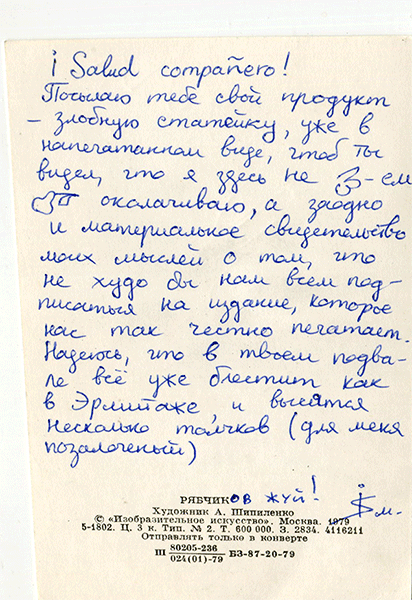 ¡ Salud compañero!
Посылаю тебе свой продукт
– злобную статейку, уже в
напечатанном виде, чтоб ты
видел, что я здесь не
околачиваю, а заодно
и материальное свидетельство
моих мыслей о том, что
не худо бы нам всем под-
писаться на издание, которое
нас так честно печатает.
Надеюсь, что в твоем подва-
ле всё уже блестит как
в Эрмитаже, и высятся
несколько толчков (для меня
позалоченый)
РЯБЧИКОВ ЖУЙ!
Художник А. Шипиленко
© «Изобразительное искусство». Москва. 1979
5-1802. Ц. 3 к. Тип. № 2. Т. 600 000. З. 2834. 4116211
Отправлять только в конверте
Ш 80205-236 БЗ-87-20-79
024(01)-79